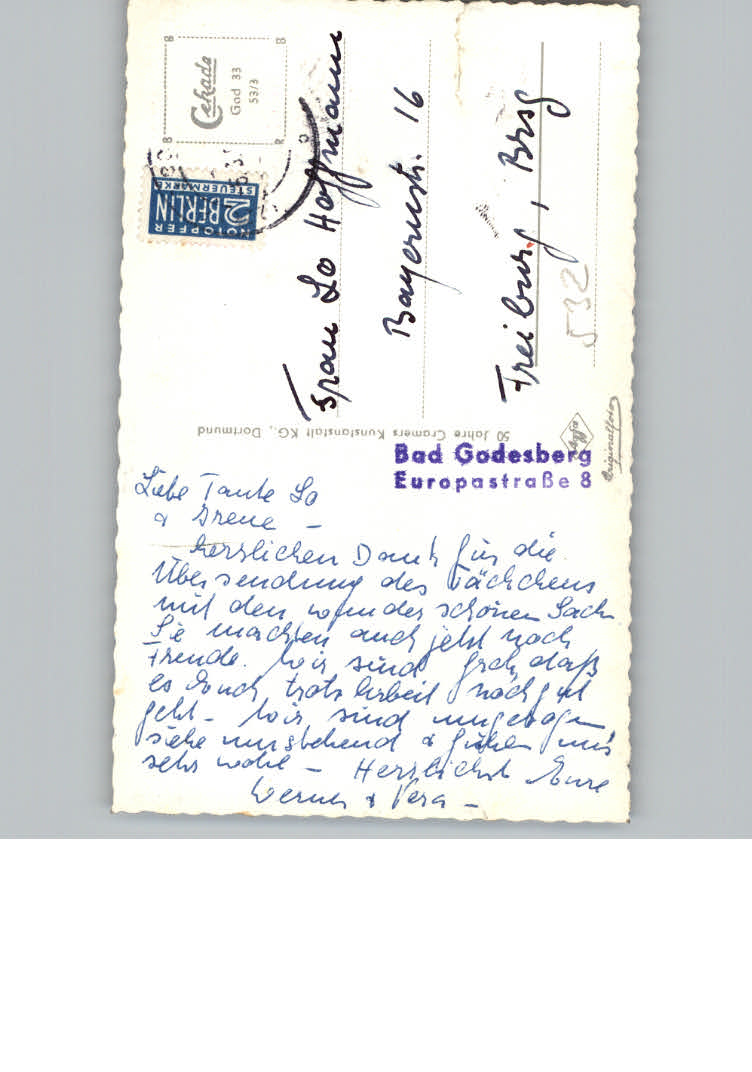 Cekada
God 33
53/3
NOTOPFER
2 BERLIN
STEUERMARKE
Frau Lo Hoffmann
Bayernstr. 16
Freiburg, Brsg
532
50 Jahre Cramers Kunstanstalt KG., Dortmund
Agfa
Originalfoto
Bad Godesberg
Europastraße 8
Liebe Tante Lo
& Irene -
herzlichen Dank für die
Übersendung des Päckchens
mit den wunderschönen Sachen
Sie machten auch jetzt noch
Freude. Wir sind froh, daß
es Euch trotz Arbeit noch gut
geht - Wir sind umgezogen
siehe umstehend & fühlen uns
sehr wohl - Herzlichst Eure
Werner & Vera -